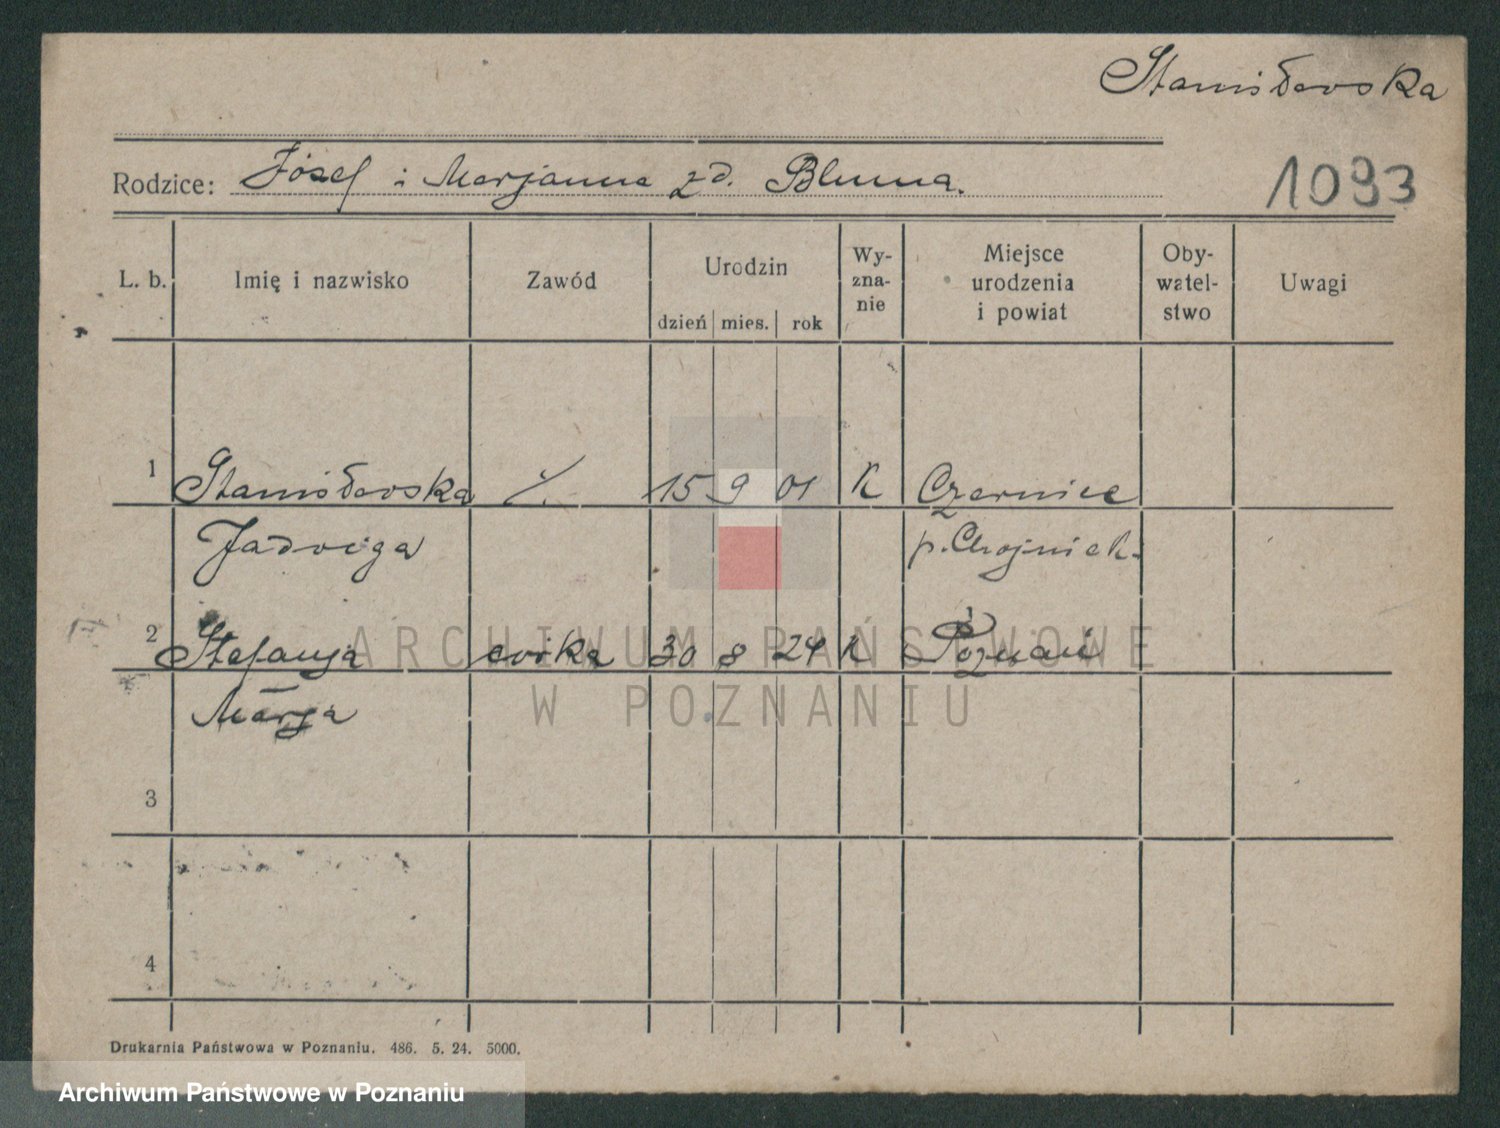 Stanisławska
Rodzice: Józef i Marjanna zd. Bluma.
1093
L. b. Imię i nazwisko Zawód Urodzin dzień mies. rok Wy-zna-nie Miejsce urodzenia i powiat Oby-watel-stwo Uwagi
1 Stanisławska 15 9 01 K Czernice
Jadwiga p. Chojnick.
2 Stefanja córka 30 8 24 K Poznań
Marja
3
4
ARCHIWUM PAŃSTWOWE
W POZNANIU
Drukarnia Państwowa w Poznaniu. 486. 5. 24. 5000.
Archiwum Państwowe w Poznaniu